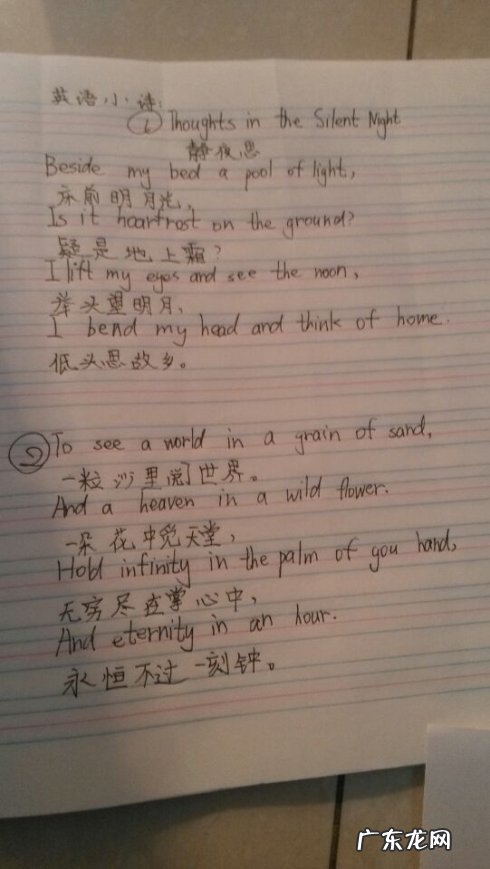 英语小诗:
① Thoughts in the Silent Night
静夜思
Beside my bed a pool of light,
床前明月光,
Is it hoarfrost on the ground?
疑是地上霜?
I lift my eyes and see the moon,
举头望明月,
I bend my head and think of home.
低头思故乡。
② To see a world in a grain of sand,
一粒沙里阅世界。
And a heaven in a wild flower.
一朵花中觅天堂,
Hold infinity in the palm of you hand,
无穷尽在掌心中,
And eternity in an hour.
永恒不过一刻钟。
广东龙网